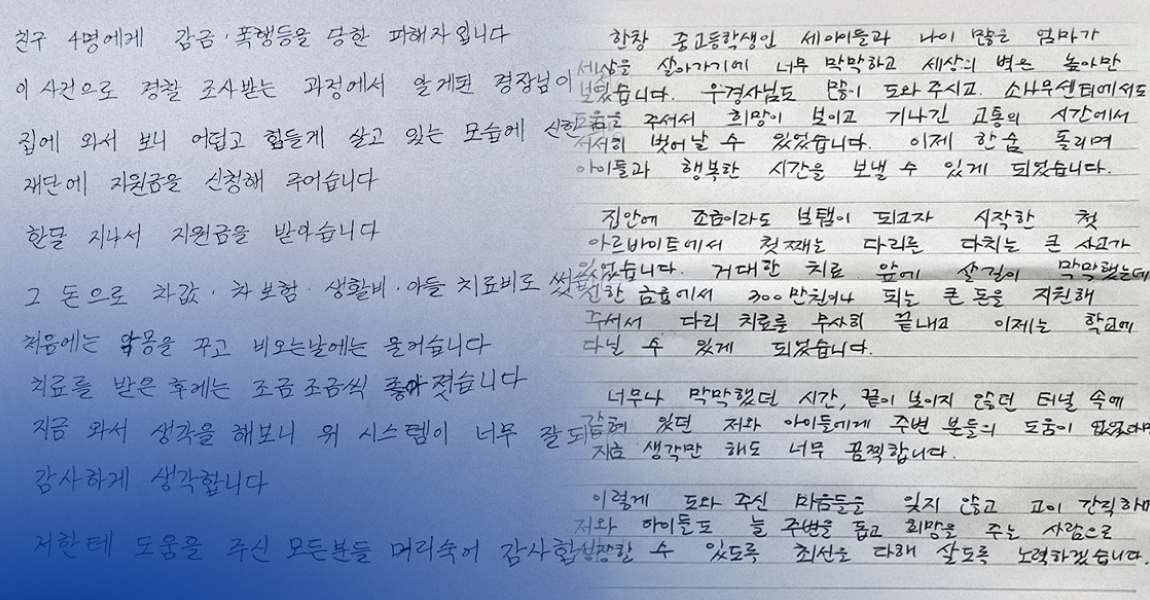 친구 4명에게 감금·폭행등을 당한 피해자 입니다
이 사건으로 경찰 조사받는 과정에서 알게된 경장님이
집에 와서 보니 어럽고 힘들게 살고 있는 모습에 신한
재단에 지원금을 신청해 주어습니다
한달 지나서 지원금을 받아습니다
그 돈으로 차값·차보험·생활비·아들 치료비도 썼습
처음에는 악몽을 꾸고 비오는날에는 울어습니다
치료를 받은 후에는 조금 조금씩 좋아 젓습니다
지금 와서 생각을 해보니 위 시스템이 너무 잘 되
감사하게 생각합니다
저한테 도움을 주신 모든분들 머리숙어 감사합
한창 중고등학생인 세아이들과 나이 많은 엄마가
세상을 살아가기에 너무 막막하고 세상의 벽은 높아만
보였습니다. 우경사님도 많이 도와주시고. 소나무센터에서도
도움을 주셔서 희망이 보이고 기나긴 고통의 시간에서
서서히 벗어날 수 있었습니다. 이제 한숨 돌리며
아이들과 행복한 시간을 보낼 수 있게 되었습니다.
집안에 조금이라도 보탬이 되고자 시작한 첫
아르바이트에서 첫째는 다리를 다치는 큰 사고가
있었습니다. 거대한 치료 앞에 살길이 막막했는데
신한금융에서 300만원이나 되는 큰 돈을 지원해
주셔서 다리 치료를 무사히 끝내고 이제는 학교에
다닐 수 있게 되었습니다.
너무나 막막했던 시간, 끝이 보이지 않던 터널 속에
갇혀 있던 저와 아이들에게 주변 분들의 도움이 없었다면
지금 생각만 해도 너무 끔찍합니다.
이렇게 도와 주신 마음들을 잊지 않고 고이 간직하며
저와 아이들도 늘 주변을 돕고 희망을 주는 사람으로
성장할 수 있도록 최선을 다해 살도록 노력하겠습니다.